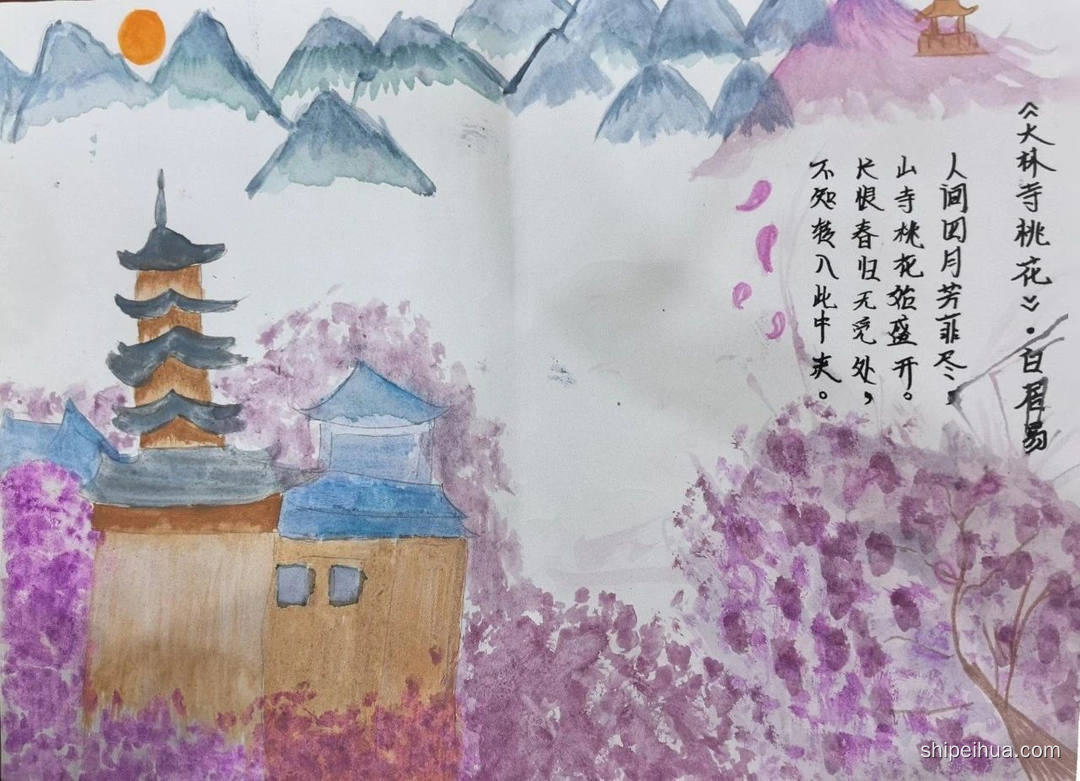 《大林寺桃花》·白居易
人间四月芳菲尽，
山寺桃花始盛开。
长恨春归无觅处，
不知转入此中来。
shipeihua.com